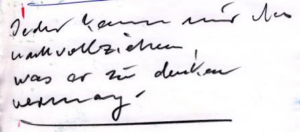 Jeder kann nur das
nachvollziehen,
was er zu denken
vermag.